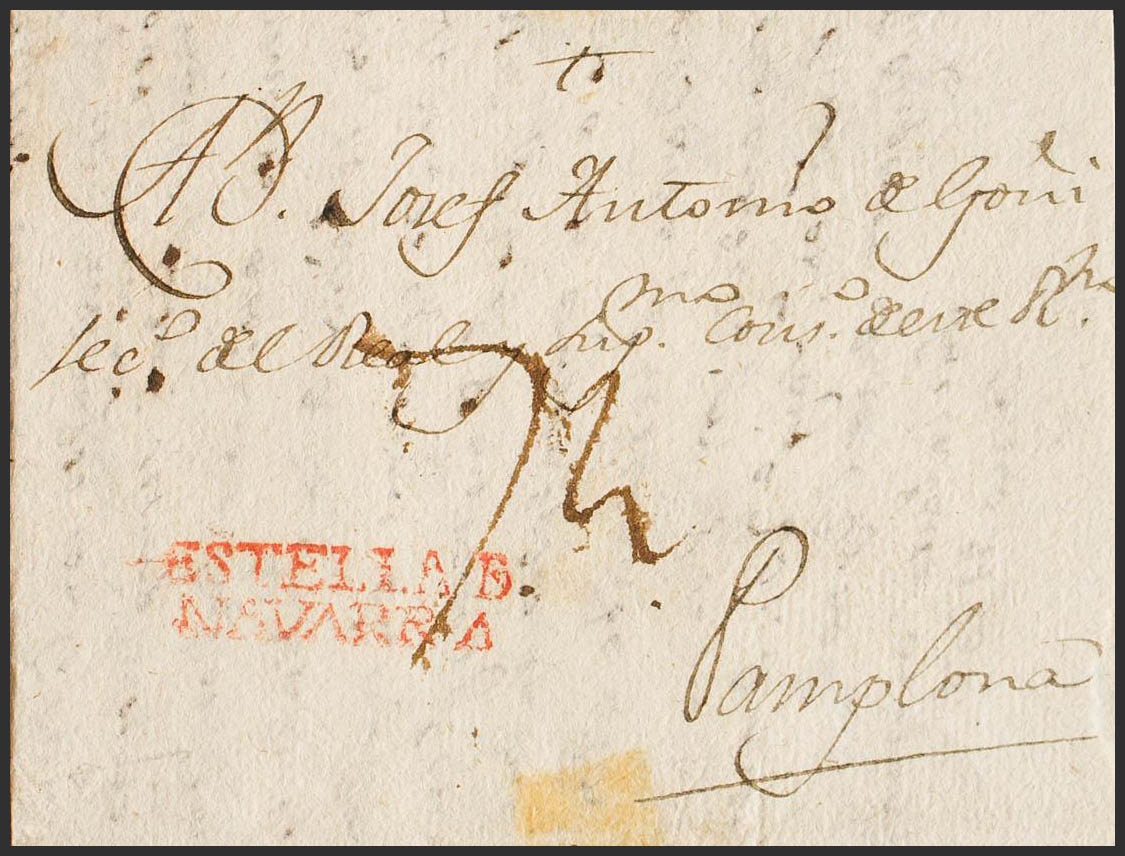 †
A D. Josef Antonio de Goñi
Sec.o del Real y Sup.mo Cons.o de este R.no
74
ESTELLA B
NAVARRA
Pamplona